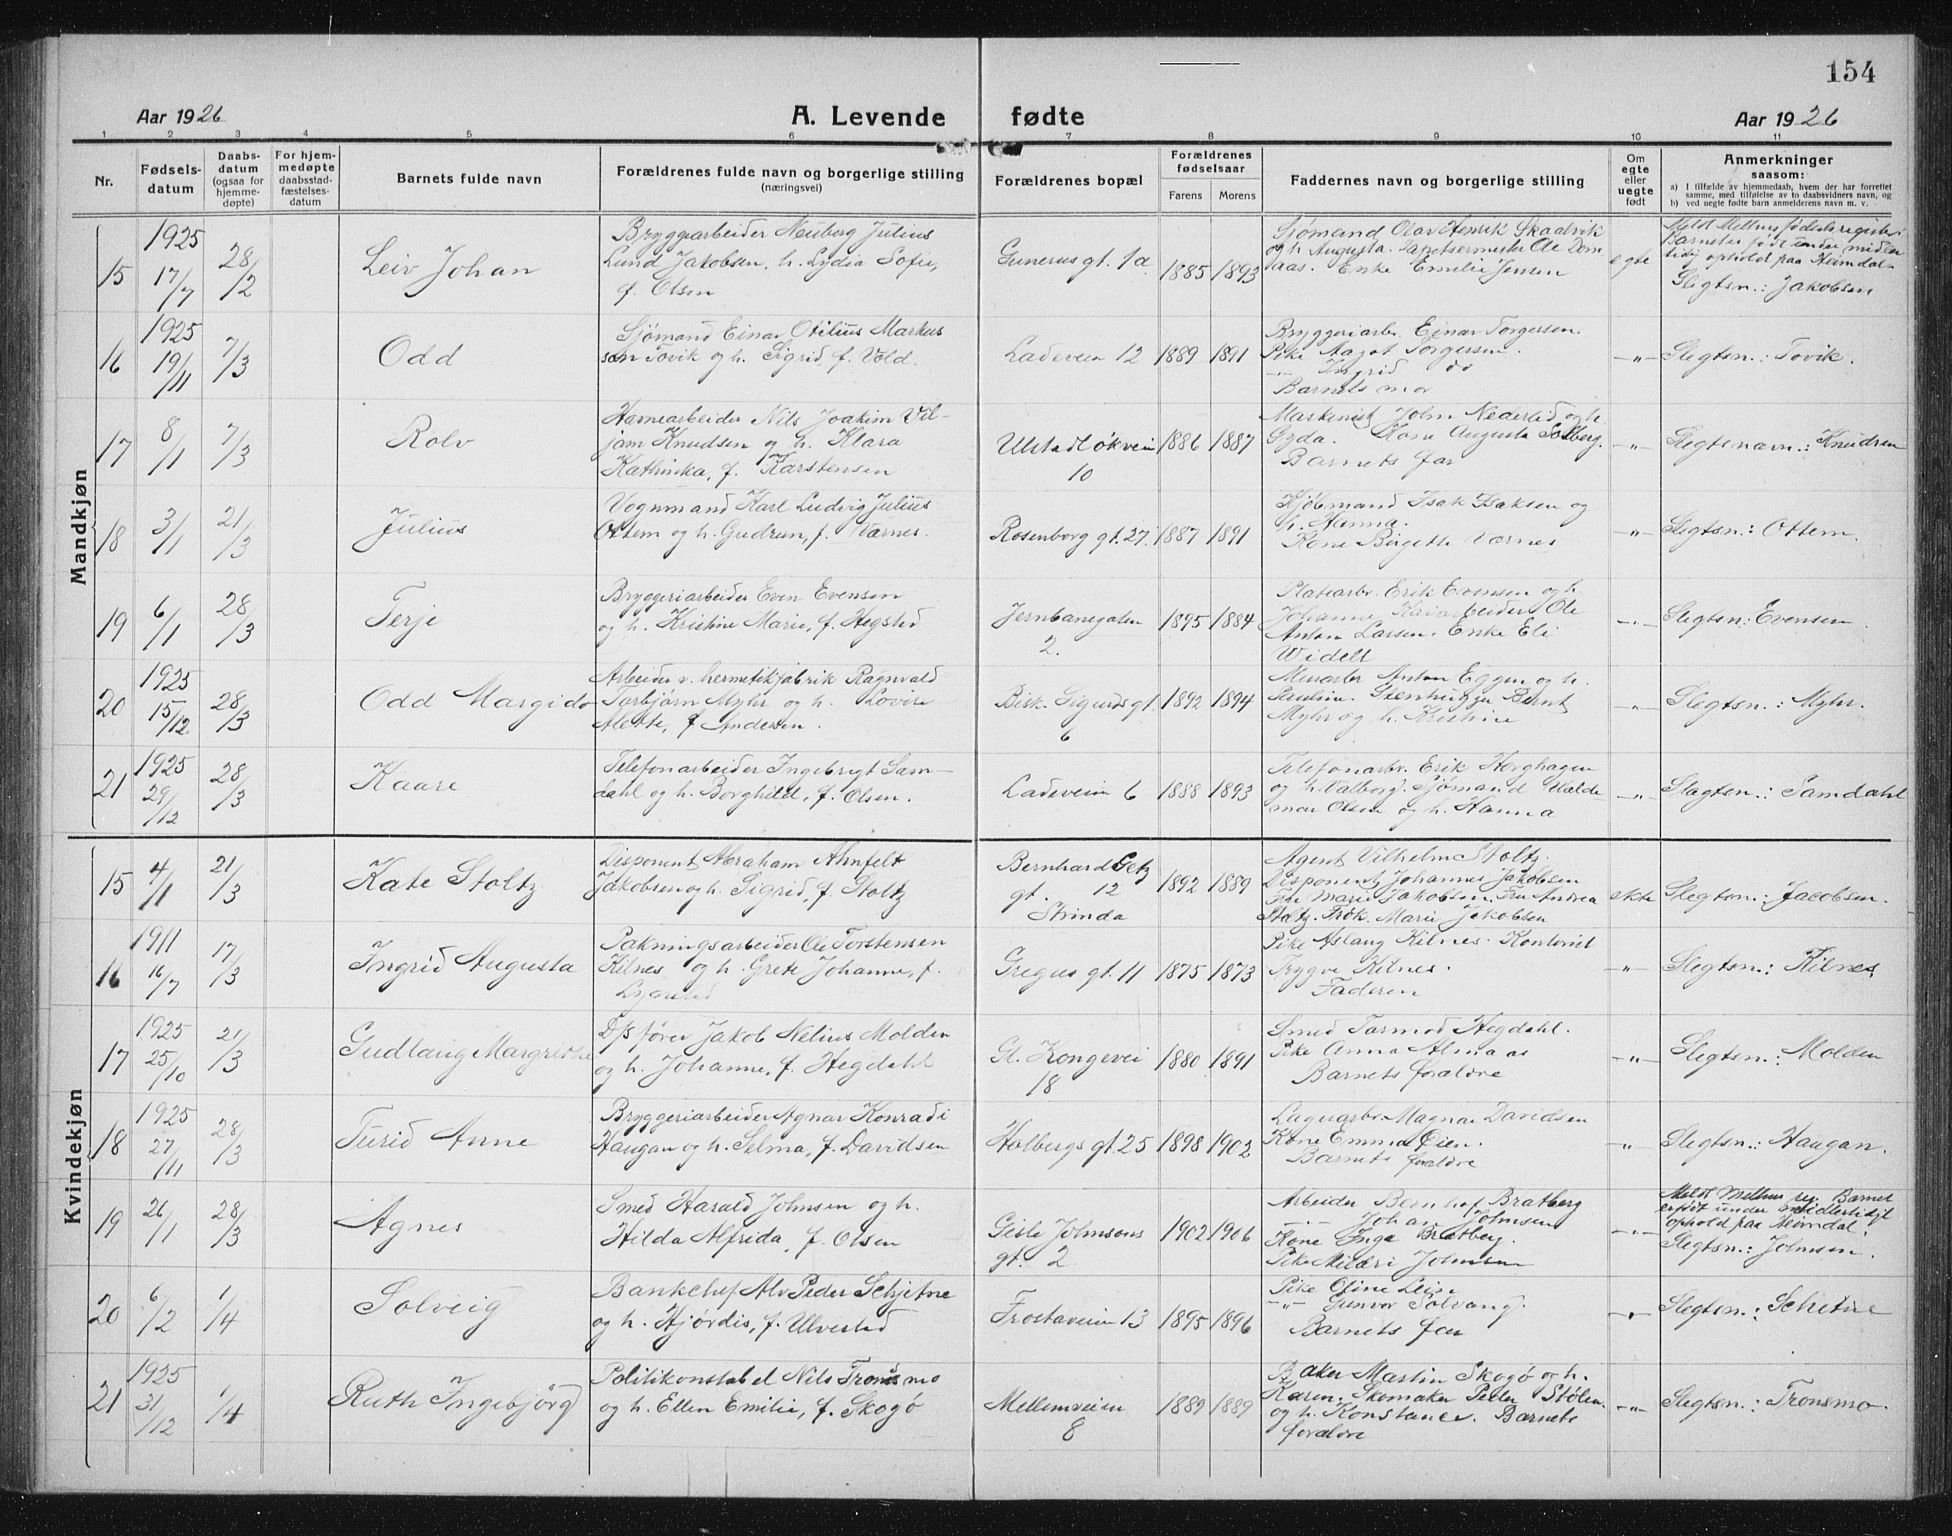 154
Aar 1926
A. Levende fødte
Aar 1926
1 2 3 4 5 6 7 8 9 10 11
Nr.
Fødsels-
datum
Daabs-
datum
(ogsaa for
hjemme-
døpte)
For hjem-
medøpte
daabsstad-
fæstelses-
datum
Barnets fulde navn
Forældrenes fulde navn og borgerlige stilling
(næringsvei)
Forældrenes bopæl
Forældrenes
fødselsaar
Farens Morens
Faddernes navn og borgerlige stilling
Om
egte
eller
uegte
født
Anmerkninger
saasom:
a) I tilfælde av hjemmedaab, hvem der har forrettet
samme, med tilføielse av to daabsvidners navn, og
b) ved uegte fødte barn anmelderens navn m. v.
Mandkjøn
15
1925
17/7
28/2
Leiv Johan
Bryggeriarbeider Neuberg Julius
Lund Jakobsen, h. Lydia Sofie,
f. Olsen
Gunerus gt. 1a
1885 1893
Sjømand Olav Henrik Skaalvik
og h. Augusta. Tapetsermester Ole Dom
aas. Enke Emilie Jensen
egte
Meldt Melhus fødselsregister
Barnet er født under midler
tidig ophold paa Heimdal
Slegtsn.: Jakobsen
16
1925
19/11
7/3
Odd
Sjømand Einar Otilius Markus
sen Tovik og h. Sigrid, f. Vold.
Ladeveien 12
1889 1891
Bryggeriarb. Einar Torgersen.
Pike Aagot Torgersen.
-"- Ingrid do
Barnets mor
-"-
Slegtsn.: Tovik.
17
8/1
7/3
Rolv
Havnearbeider Nils Joakim Vil-
jam Knudsen og h. Klara
Kathinka, f. Karstensen
Ulstadløkvein
10
1886 1887
Maskinist John Nederlid og h.
Gyda. Kone Augusta Solberg.
Barnets far
-"-
Slegtsnavn.: Knudsen
18
3/1
21/3
Julius
Vognmand Karl Ludvig Julius
Ottem og h. Gudrun, f. Værnes.
Rosenborg gt. 27.
1887 1891
Kjøbmand Isak Isaksen og
h. Hanna.
Kone Birgette Værnes
-"-
Slegtsn.: Ottem.
19
6/1
28/3
Terje
Bryggeriarbeider Even Evensen
og h. Kristine Marie, f. Hegstad
Jernbanegaten
2.
1895 1884
Platearb. Erik Evensen og h.
Johanne. Kaiarbeider Ole
Anton Larsen. Enke Eli
Widell
-"-
Slegtsn.: Evensen.
20
1925
15/12
28/3
Odd Margido
Arbeider v. hermetikfabrik Ragnvald
Torbjørn Myhr og h. Lovise
Alette, f. Andersen.
Bisk. Sigurds gt.
6
1892 1894
Murarb. Anton Eggen og h.
Pauline. Stenhugger Bernt
Myhr og h. Kristine
-"-
Slegtsn.: Myhr.
21
1925
29/12
28/3
Kaare
Telefonarbeider Ingebrigt Sam-
dahl og h. Borghild, f. Olsen.
Ladeveien 6
1888 1893
Telefonarb. Erik Horghagen
og h. Valborg. Sjømand Valde-
mar Olsen og h. Hanna
-"-
Slegtsn.: Samdahl
Kvindekjøn
15
4/1
21/3
Kate Stoltz
Disponent Abraham Ahnfelt
Jakobsen og h. Sigrid, f. Stoltz
Bernhard Getz
gt. 12
Strinda
1892 1889
Agent Vilhelm Stoltz.
Disponent Johannes Jakobsen
Frk Marie Jakobsen. Fru Andrea
Stoltz. Frøk. Marie Jakobsen
ekte
Slegtsn.: Jacobsen.
16
1911
16/7
17/3
Ingrid Augusta
Pakningsarbeider Ole Torstensen
Kilnes og h. Grete Johanne, f.
Gregus gt. 11
1875 1873
Pike Aslaug Kilnes. Kontorist
Trygve Kilnes.
Faderen
-"-
Slegtsn.: Kilnes.
17
1925
25/10
21/3
Gudlaug Margrethe
D/s fører Jakob Nelius Molden
og h. Johanne, f. Hegdahl
Gl. Kongevei
18
1880 1891
Smed Tormod Hegdahl.
Pike Anna Almaas
Barnets forældre
-"-
Slegtsn.: Molden
18
1925
27/11
28/3
Turid Anne
Bryggeriarbeider Agnar Konradi
Haugan og h. Selma, f. Davidsen
Holbergs gt. 25
1898 1902
Lagerarb. Magnar Davidsen
Kone Emma Øien.
Barnets forældre
-"-
Slegtsn.: Haugan.
19
26/1
28/3
Agnes
Smed Harald Johnsen og h.
Hilda Alfrida, f. Olsen
Gisle Johnsons
gt. 2
1902 1906
Arbeider Bernhof Bratberg
-"- Johan Johnsen
Kone Inga Bratberg.
Pike Mildri Johnsen
-"-
Meldt Melhus reg. Barnet
er født under midlertidigt
ophold paa Heimdal.
Slegtsn.: Johnsen.
20
6/2
1/4
Solveig
Bankchef Alv Peder Schjetne
og h. Hjørdis, f. Ulvestad
Frostaveien 13
1895 1896
Pike Oline Lein
-"- Gunvor Solvang.
Barnets far
-"-
Slegtsn.: Schetne
21
1925
31/12
1/4
Ruth Ingebjörg
Politikonstabel Nils Tronsmo
og h. Ellen Emilie, f. Skogø
Mellemveien
8
1889 1889
Baker Martin Skogø og h.
Karen. Skomaker Peder Stølen.
og h. Konstance. Barnets
forældre
-"-
Slegtsn.: Tronsmo.